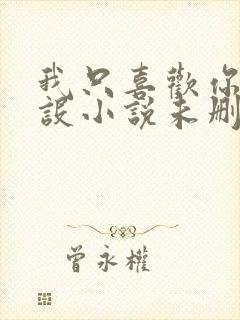 我只喜歡你
設小說未刪
曾永權